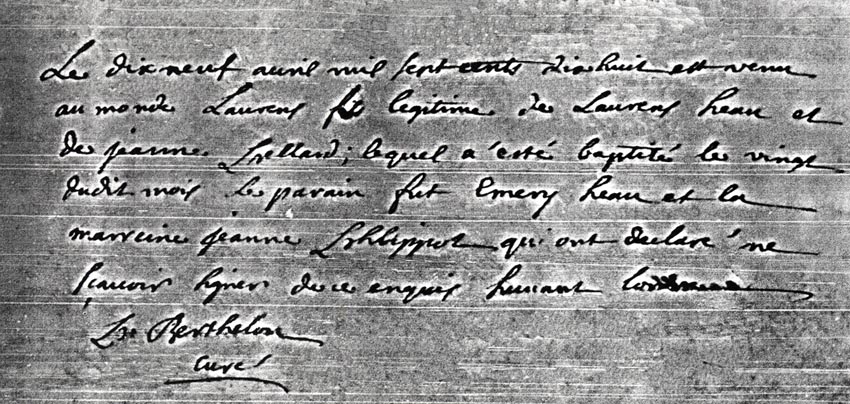 Le dix neuf auril mil sept cents dixhuit est venu
au monde Laurens fils legitime de Laurens heau et
de jeanne lequel a esté baptisé le vingt
dudit mois le parain fut Emery heau et la
marreine jeanne qui ont declaré ne
sçauoir signer de ce enquis suiuant
Berthelon
curé